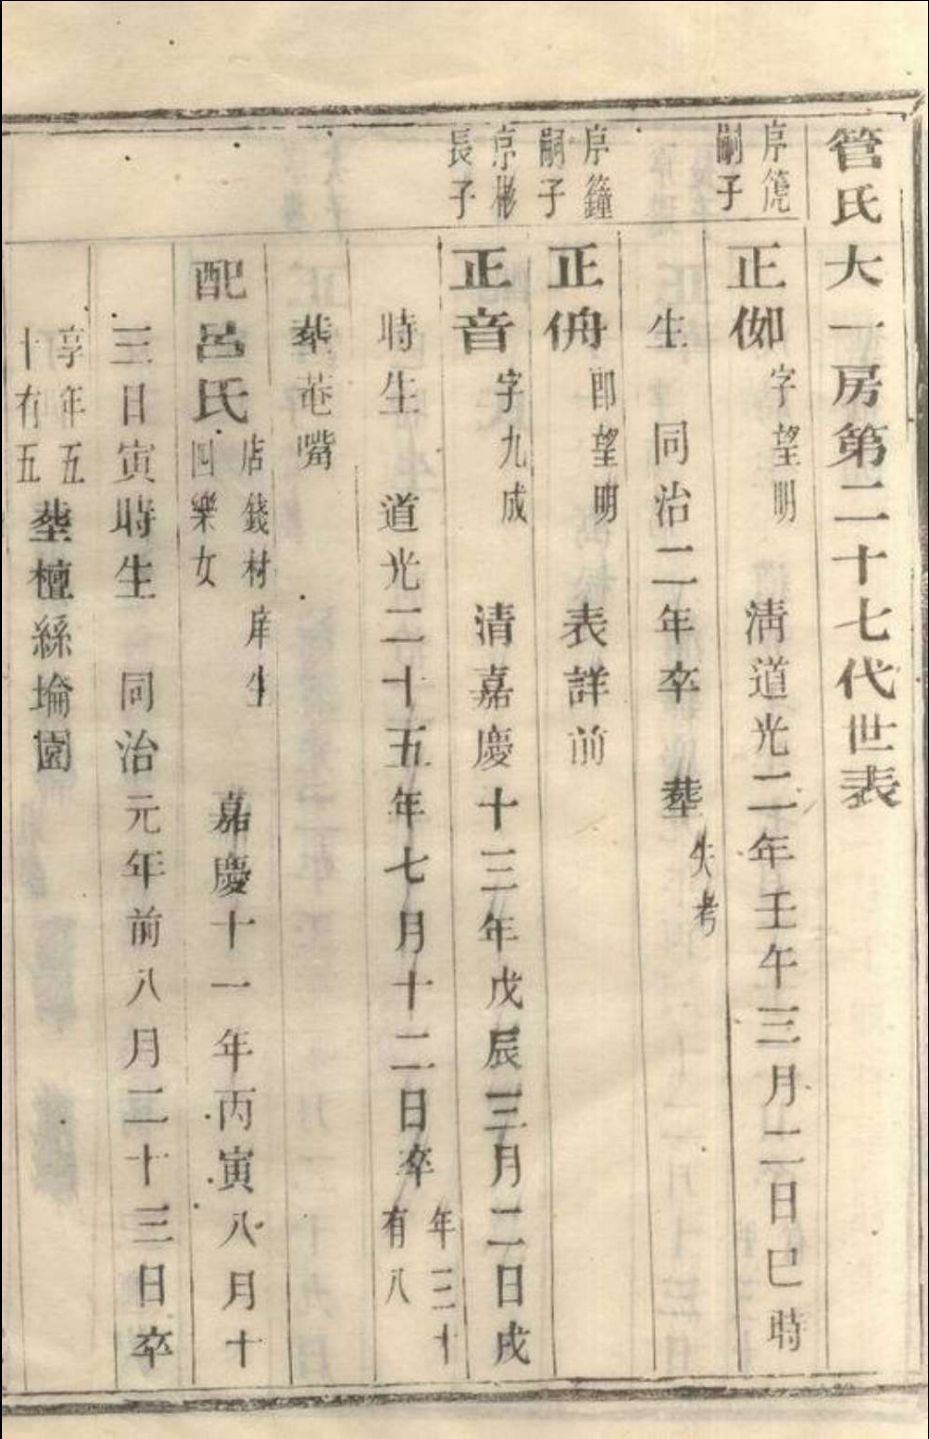 管氏大一房第二十七代世表
序箎
嗣子
正伽 字望明 清道光二年壬午三月二日巳時
生 同治二年卒 塟 失考
序鐘
嗣子
正侜 卽望明 表詳前
序彬
長子
正音 字九成 清嘉慶十三年戊辰三月二日戌
時生 道光二十五年七月十二日卒 年三十
有八
塟菴嘴
配呂氏 店錢材庠生
四樂女
嘉慶十一年丙寅八月十
三日寅時生 同治元年前八月二十三日卒
享年五
十有五
塟檀絲埨園